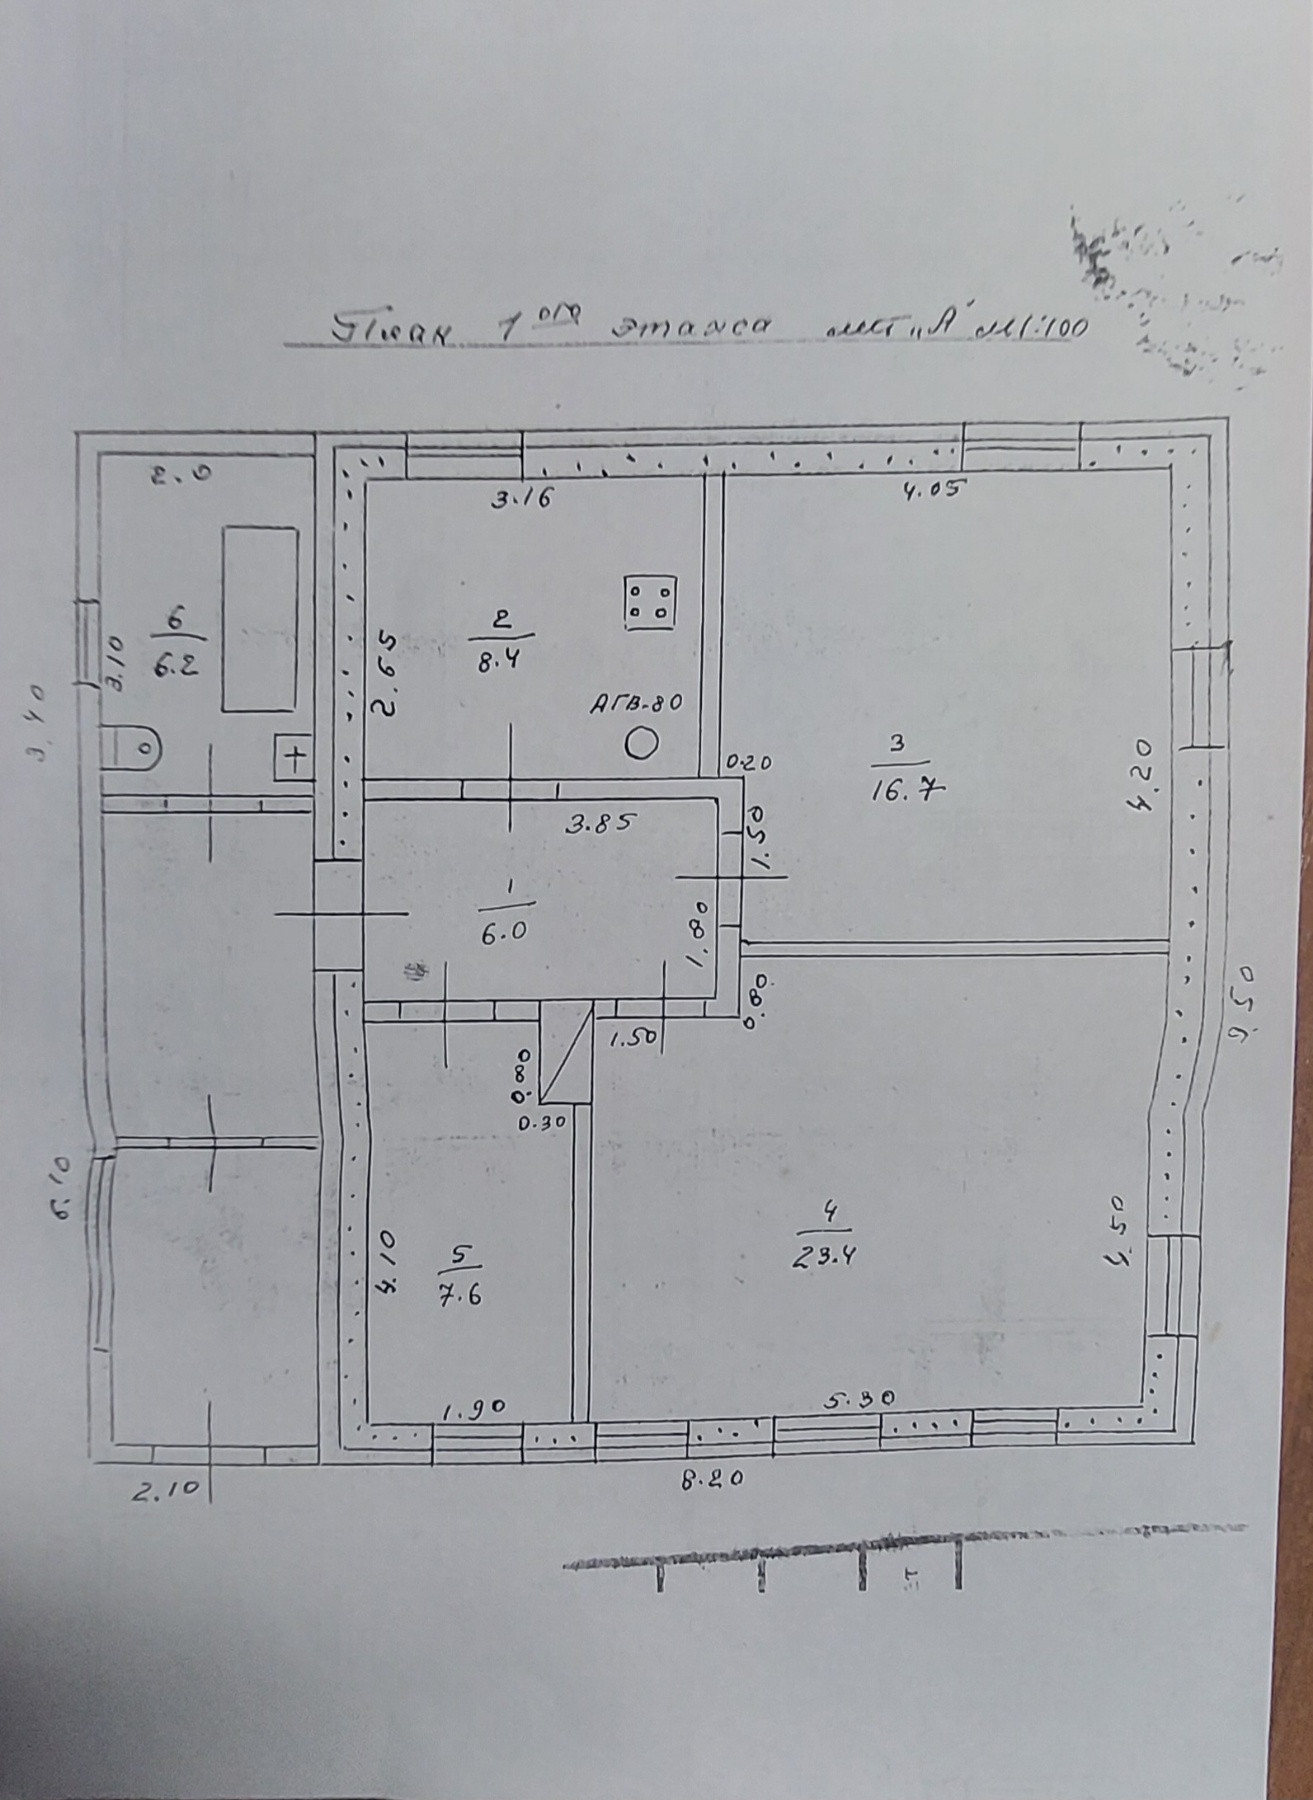 План 1ого этажа лит „А" М1:100
2.0
3.16
4.05
6
6.2
3.10
3.40
2.65
2
8.4
АГВ-80
0.20
3
16.7
4.20
3.85
1.50
1
6.0
1.80
0.80
1.50
0.80
0.30
9.50
6.10
4.10
5
7.6
4
23.4
4.50
1.90
5.30
2.10
8.20